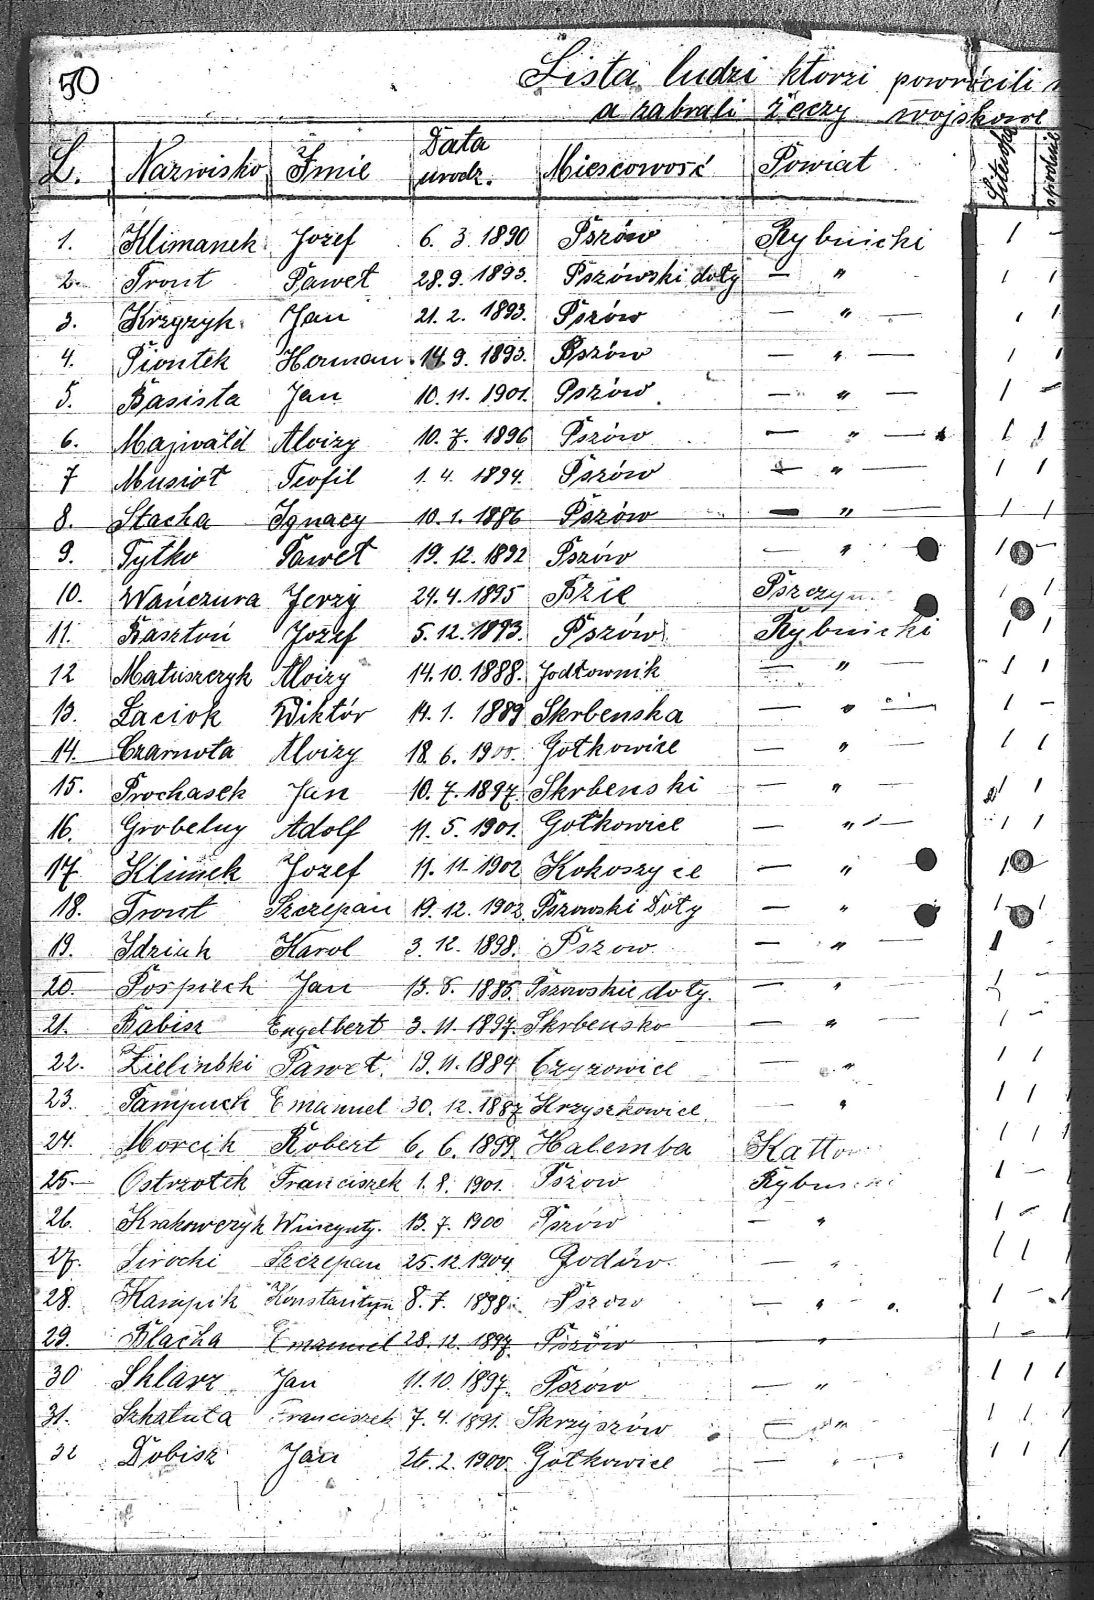 50
Lista ludzi ktorzi powrócili
a zabrali rzeczy wojskowe
L. Nazwisko Imie Data urodz. Miescowość Powiat Litewka spodnie
1. Klimanek Jozef 6. 3. 1890 Pszów Rybnicki 1 -
2. Tront Paweł 28. 9. 1893. Pszówski doły — " 1 1
3. Krzyzyk Jan 21. 2. 1893. Pszów — " — 1 1
4. Piontek Herman 14. 9. 1893. Pszów — " — 1 1
5. Basista Jan 10. 11. 1901. Pszów — " — 1 -
6. Majwald Aloizy 10. 7. 1896 Pszów — " — 1 1
7 Musioł Teofil 1. 4. 1894. Pszów — " — 1 1
8. Stacha Ignacy 10. 1. 1886 Pszów — " — 1 1
9. Tytko Paweł 19. 12. 1892 Pszów — " 1 -
10. Wańczura Jerzy 24. 4. 1895 Bzie Pszczyn 1 1
11. Kasztoń Jozef 5. 12. 1893. Pszów Rybnicki 1 1
12 Matuszczyk Aloizy 14. 10. 1888. Jodłownik — " — 1 1
13. Łaciok Wiktór 14. 1. 1889 Skrbenska — " — 1 -
14. Czarnota Aloizy 18. 6. 1900. Gołkowice — " — 1 1
15. Prochasek Jan 10. 7. 1897 Skrbenski — " — 1 1
16. Grobelny Adolf 11. 5. 1901. Gołkowice — " — 1 1
17. Klimek Jozef 11. 11. 1902 Kokoszyce — " 1
18. Tront Szczepan 19. 12. 1902. Pszowski Doły — " — 1 - 1
19. Idziak Karol 3. 12. 1898. Pszow — " — 1 1
20. Pospiech Jan 13. 8. 1885. Pszowskie doły. — " — 1
21. Babisz Engelbert 3. 11. 1897. Skrbensko — " — 1 -
22. Zielinski Paweł. 19. 11. 1884 Czyzowice — " 1 1
23. Pampuch Emanuel 30. 12. 1887 Krzyszkowice — " 1 1
24. Morcik Robert 6. 6. 1899. Halemba Katto 1 1
25 Ostrzołek Franciszek 1. 8. 1901. Pszow Rybnicki 1 -
26. Krakowczyk Winzynty. 13. 7. 1900 Pszów — " 1 -
27. Sirocki Szczepan 25. 12. 1904. Godów — " 1 1
28. Kampik Konstantyn 8. 7. 1898. Pszow — " — 1 -
29. Blacha Emanuel 28. 12. 1897. Pszów " 1 -
30 Sklarz Jan 11. 10. 1897. Pszów — " 1 1
31. Szkatuła Franciszek 7. 4. 1891. Skrzyszów — " 1 1
32 Dobisz Jan 26. 2. 1900. Gołkowice — " — 1 1